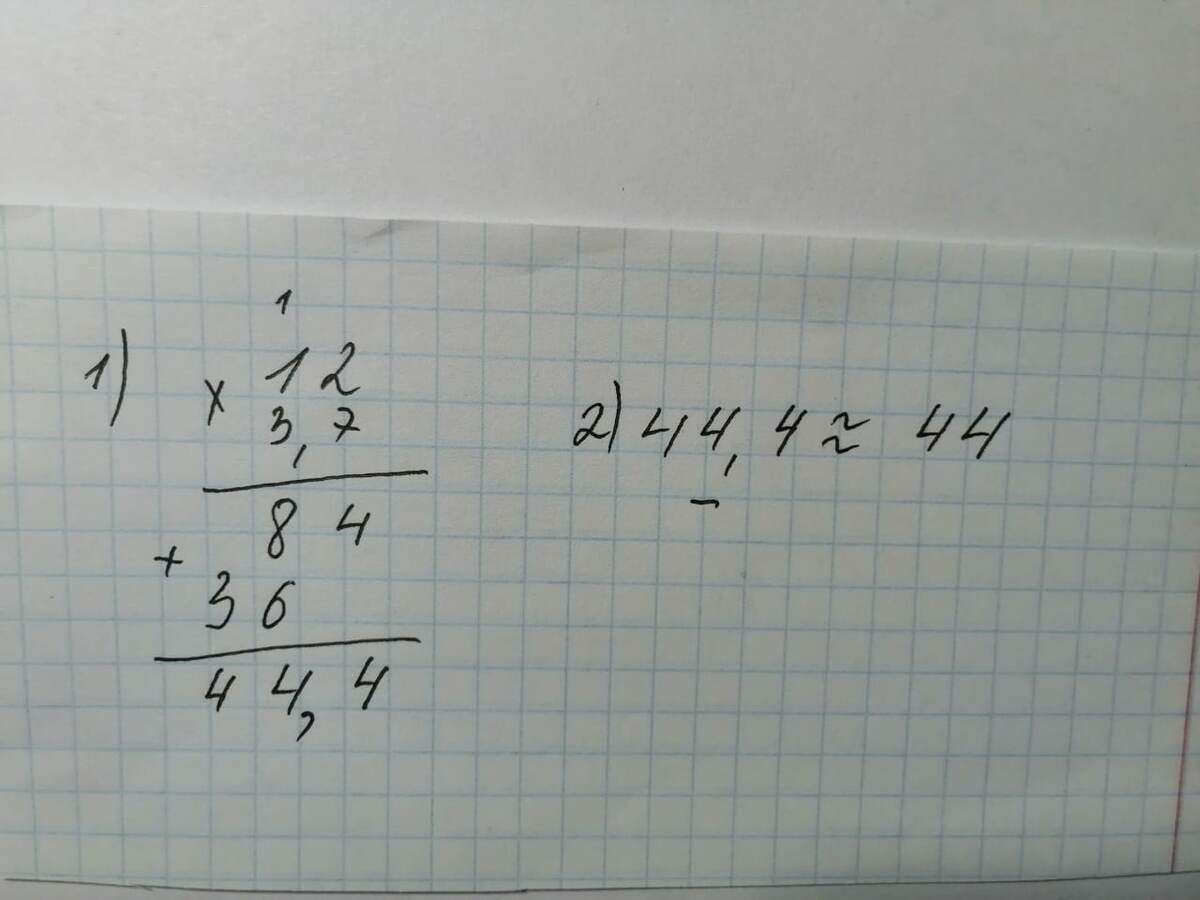 1
1) × 12
3,7
84
+
36
44,4
2) 44,4 ≈ 44